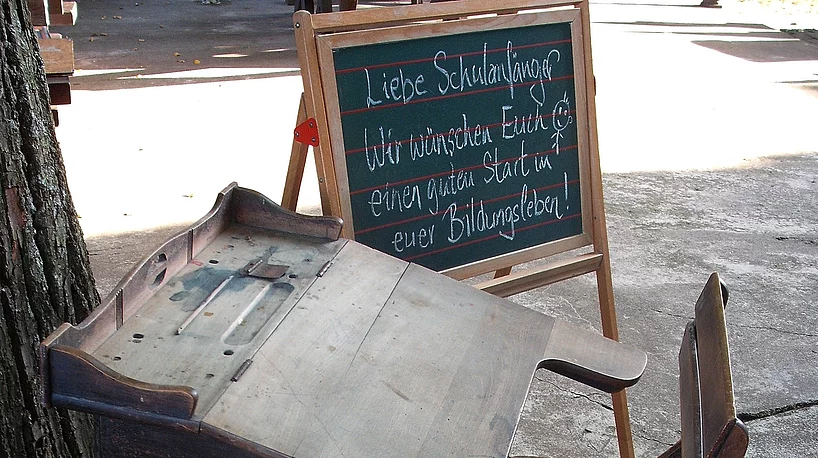 Liebe Schulanfänger
Wir wünschen Euch
einen guten Start in
euer Bildungsleben!